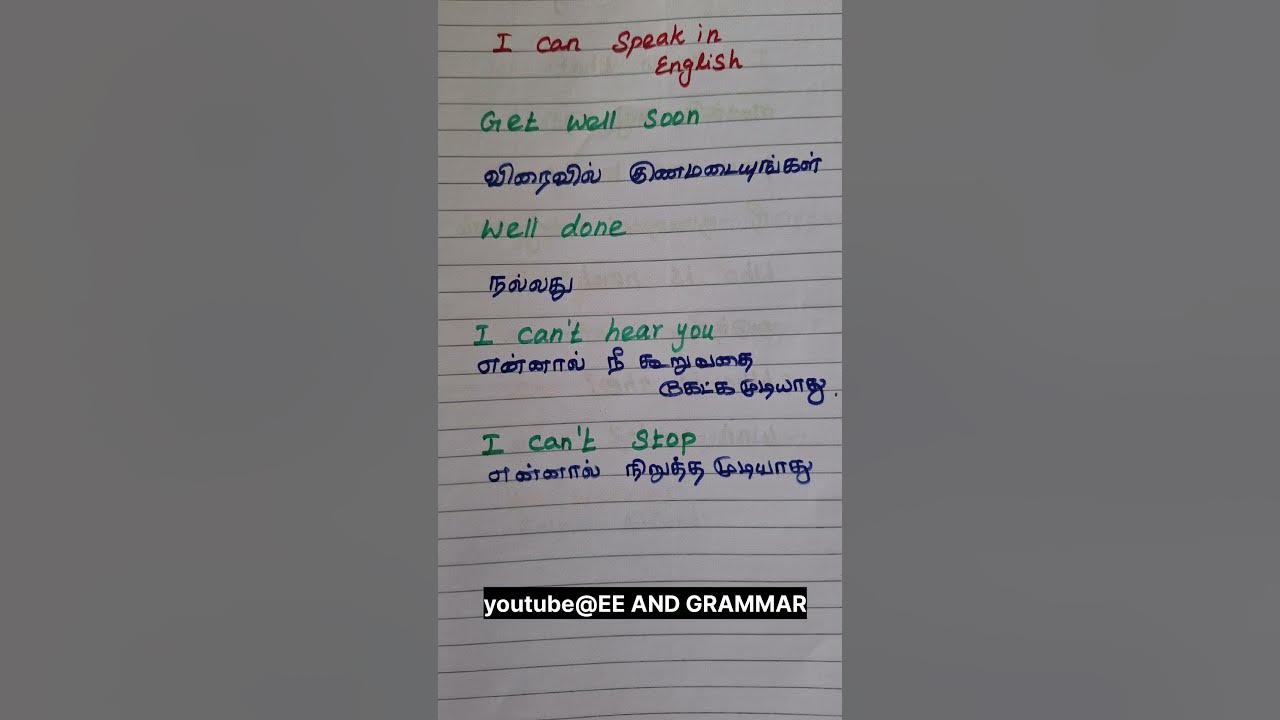 I can speak in
English
Get well soon
விரைவில் குணமடையுங்கள்
Well done
நல்லது
I can't hear you
என்னால் நீ கூறுவதை
கேட்க முடியாது.
I can't stop
என்னால் நிறுத்த முடியாது
youtube@EE AND GRAMMAR